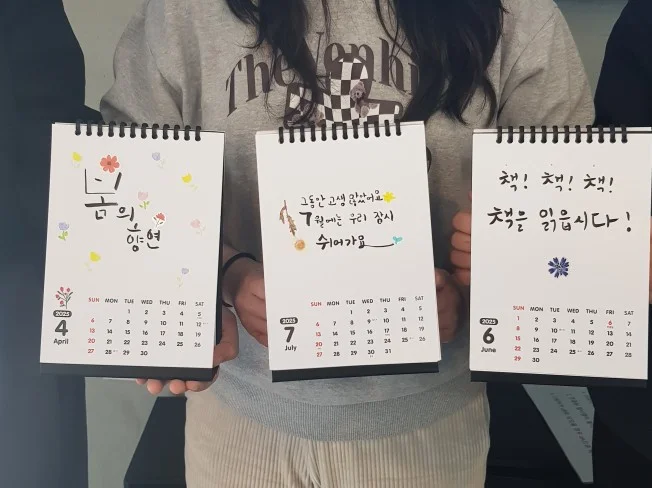 The
봄의
향연
2025
4
April
SUN MON TUE WED THU FRI SAT
1 2 3 4 5
6 7 8 9 10 11 12
13 14 15 16 17 18 19
20 21 22 23 24 25 26
27 28 29 30
그동안 고생 많았어요
7월에는 우리 잠시
쉬어가요
2025
7
July
SUN MON TUE WED THU FRI SAT
1 2 3 4 5
6 7 8 9 10 11 12
13 14 15 16 17 18 19
20 21 22 23 24 25 26
27 28 29 30 31
책! 책! 책!
책을 읽읍시다!
2025
6
June
SUN MON TUE WED THU FRI SAT
1 2 3 4 5 6 7
8 9 10 11 12 13 14
15 16 17 18 19 20 21
22 23 24 25 26 27 28
29 30